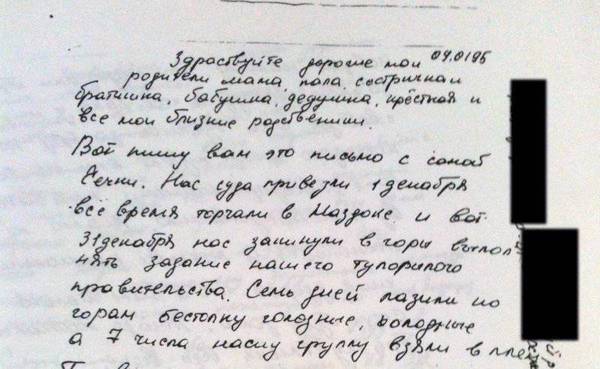 Здраствуйте дорогие мои 09.01 95
родители мама, папа, сестричка и
братишка, бабушка, дедушка, крёстная и
все мои близкие родственики.
Вот пишу вам это письмо с самой
Чечни. Нас суда привезли 1 декабря
всё время торчали в Моздоке и вот
31 декабря нас закинули в горы выпол
нять задание нашего тупорылого
правительства. Семь дней лазили по
горам бестолку голодные, холодные
а 7 числа нашу группу взяли в плен